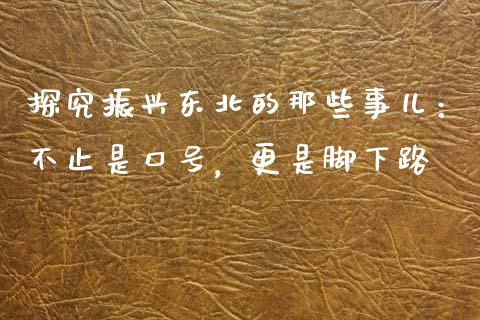 探究振兴东北的那些事儿：
不止是口号，更是脚下路